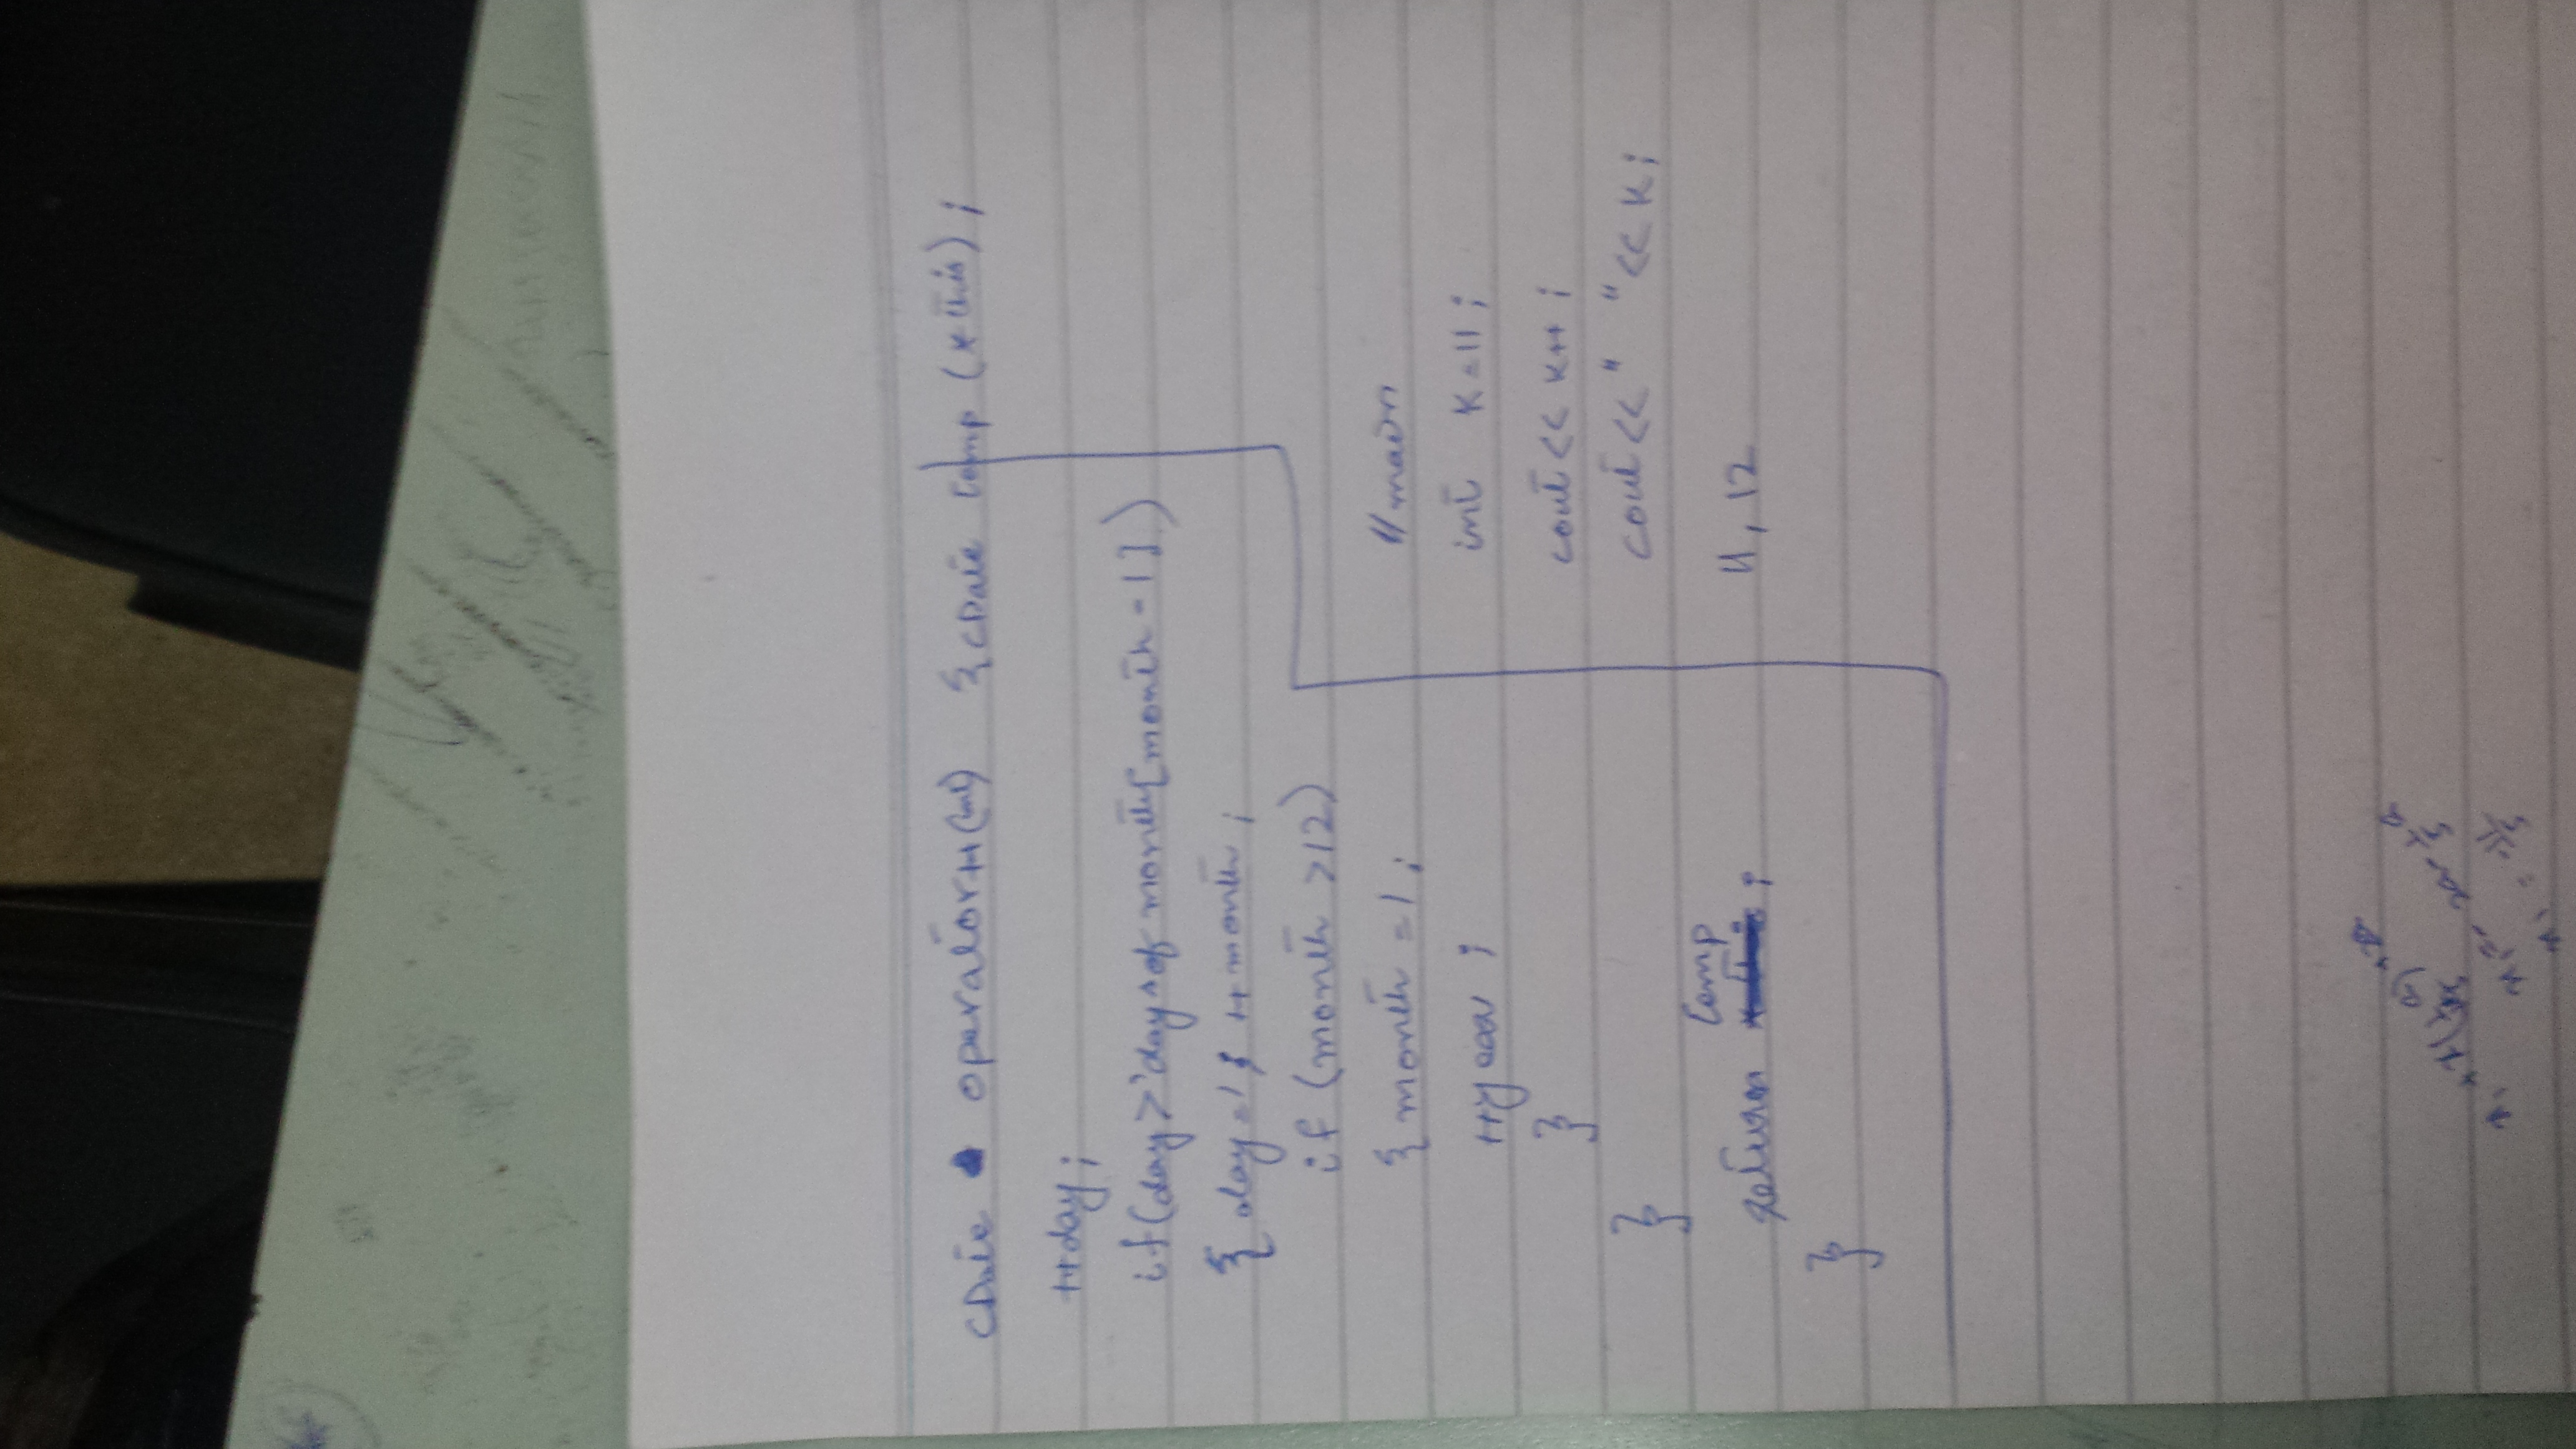 CDate operator++(int) { CDate temp (*this);
++day;
if(day > daysofmonth[month-1])
{ day=1; ++month;
if (month >12)
{ month =1;
++year ;
}
}
return temp ;
}
//main
int k=11;
cout<< k++ ;
cout<<" "<< k;
11, 12